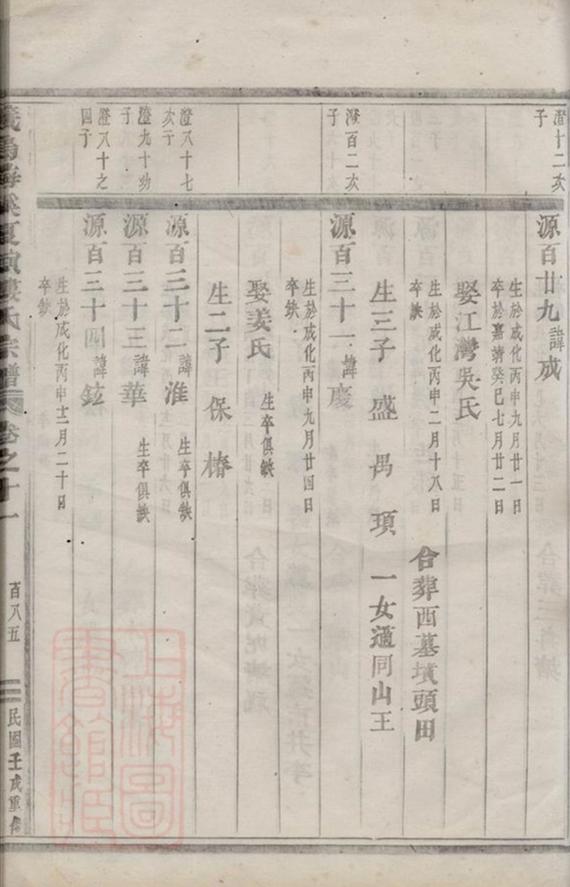 澄十二次子
源百廿九諱成
生於成化丙申九月廿一日
卒於嘉靖癸巳七月廿二日
娶江灣吳氏
生於成化丙申二月十八日
卒缺
合葬西墓墳頭田
生三子 盛 禺 頊 一女適同山王
澄百二次子
源百三十一諱慶
生於成化丙申九月廿四日
卒缺
娶姜氏 生卒俱缺
生二子 保 椿
澄八十七次子
源百三十二諱淮 生卒俱缺
澄九十幼子
源百三十三諱華 生卒俱缺
澄八十之四子
源百三十四諱鉉
生於成化丙申十二月二十日
卒缺
婁氏宗譜 卷之十一 百八五 民國壬戌重修
上海圖書館藏